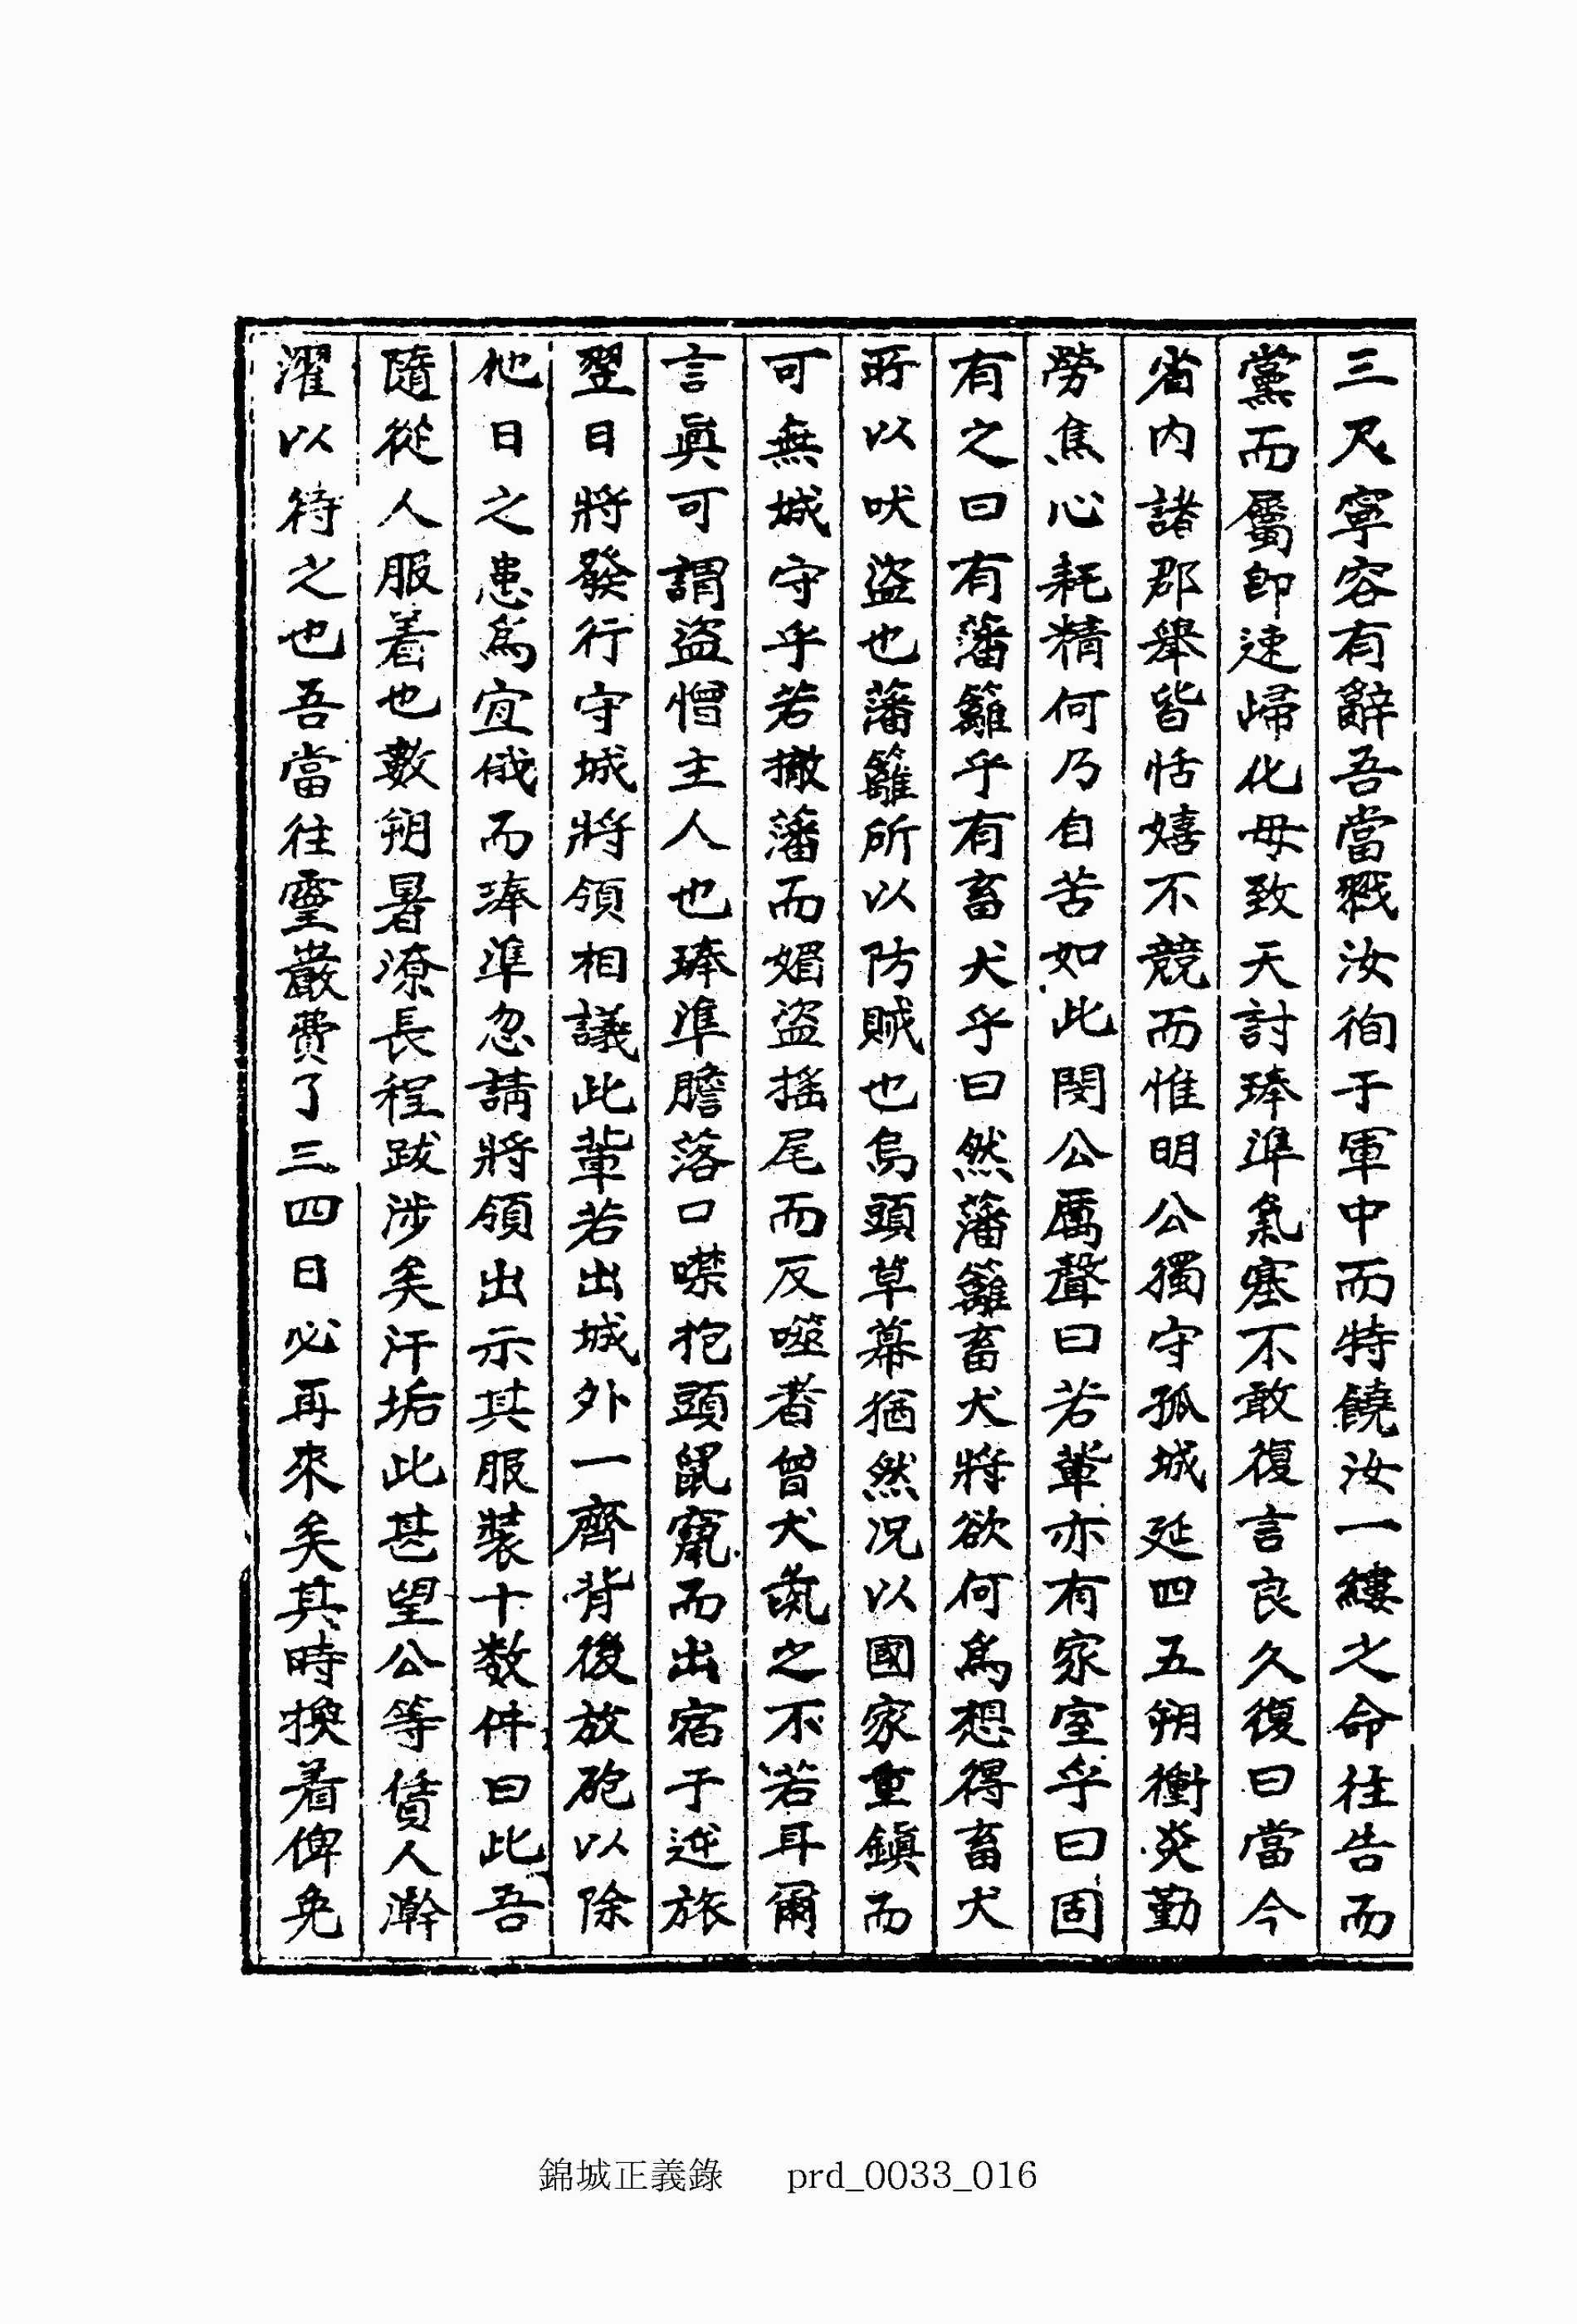 三尺寧容有辭吾當戮汝徇于軍中而特饒汝一縷之命徃告而
黨而屬卽速歸化毋致天討琫準氣塞不敢復言良久復曰當今
省內諸郡擧皆恬嬉不競而惟明公獨守孤城延四五朔衝炎勤
勞焦心耗精何乃自苦如此閔公厲聲曰若輩亦有家室乎曰固
有之曰有藩籬乎有畜犬乎曰然藩籬畜犬將欲何爲想得畜犬
所以吠盜也藩籬所以防賊也烏頭草幕猶然况以國家重鎭而
可無城守乎若撤藩而媚盜搖尾而反噬者曾犬彘之不若耳爾
言眞可謂盜憎主人也琫準膽落口噤抱頭鼠竄而出宿于逆旅
翌日將發行守城將將領相議此輩若出城外一齊背後放砲以除
他日之患爲宜俄而琫準忽請將領出示其服裝十数件曰此吾
隨從人服着也數朔暑潦長程跋涉矣汗垢此甚望公等賃人澣
濯以待之也吾當往靈巖費了三四日必再來矣其時換着俾免
錦城正義錄 prd_0033_016